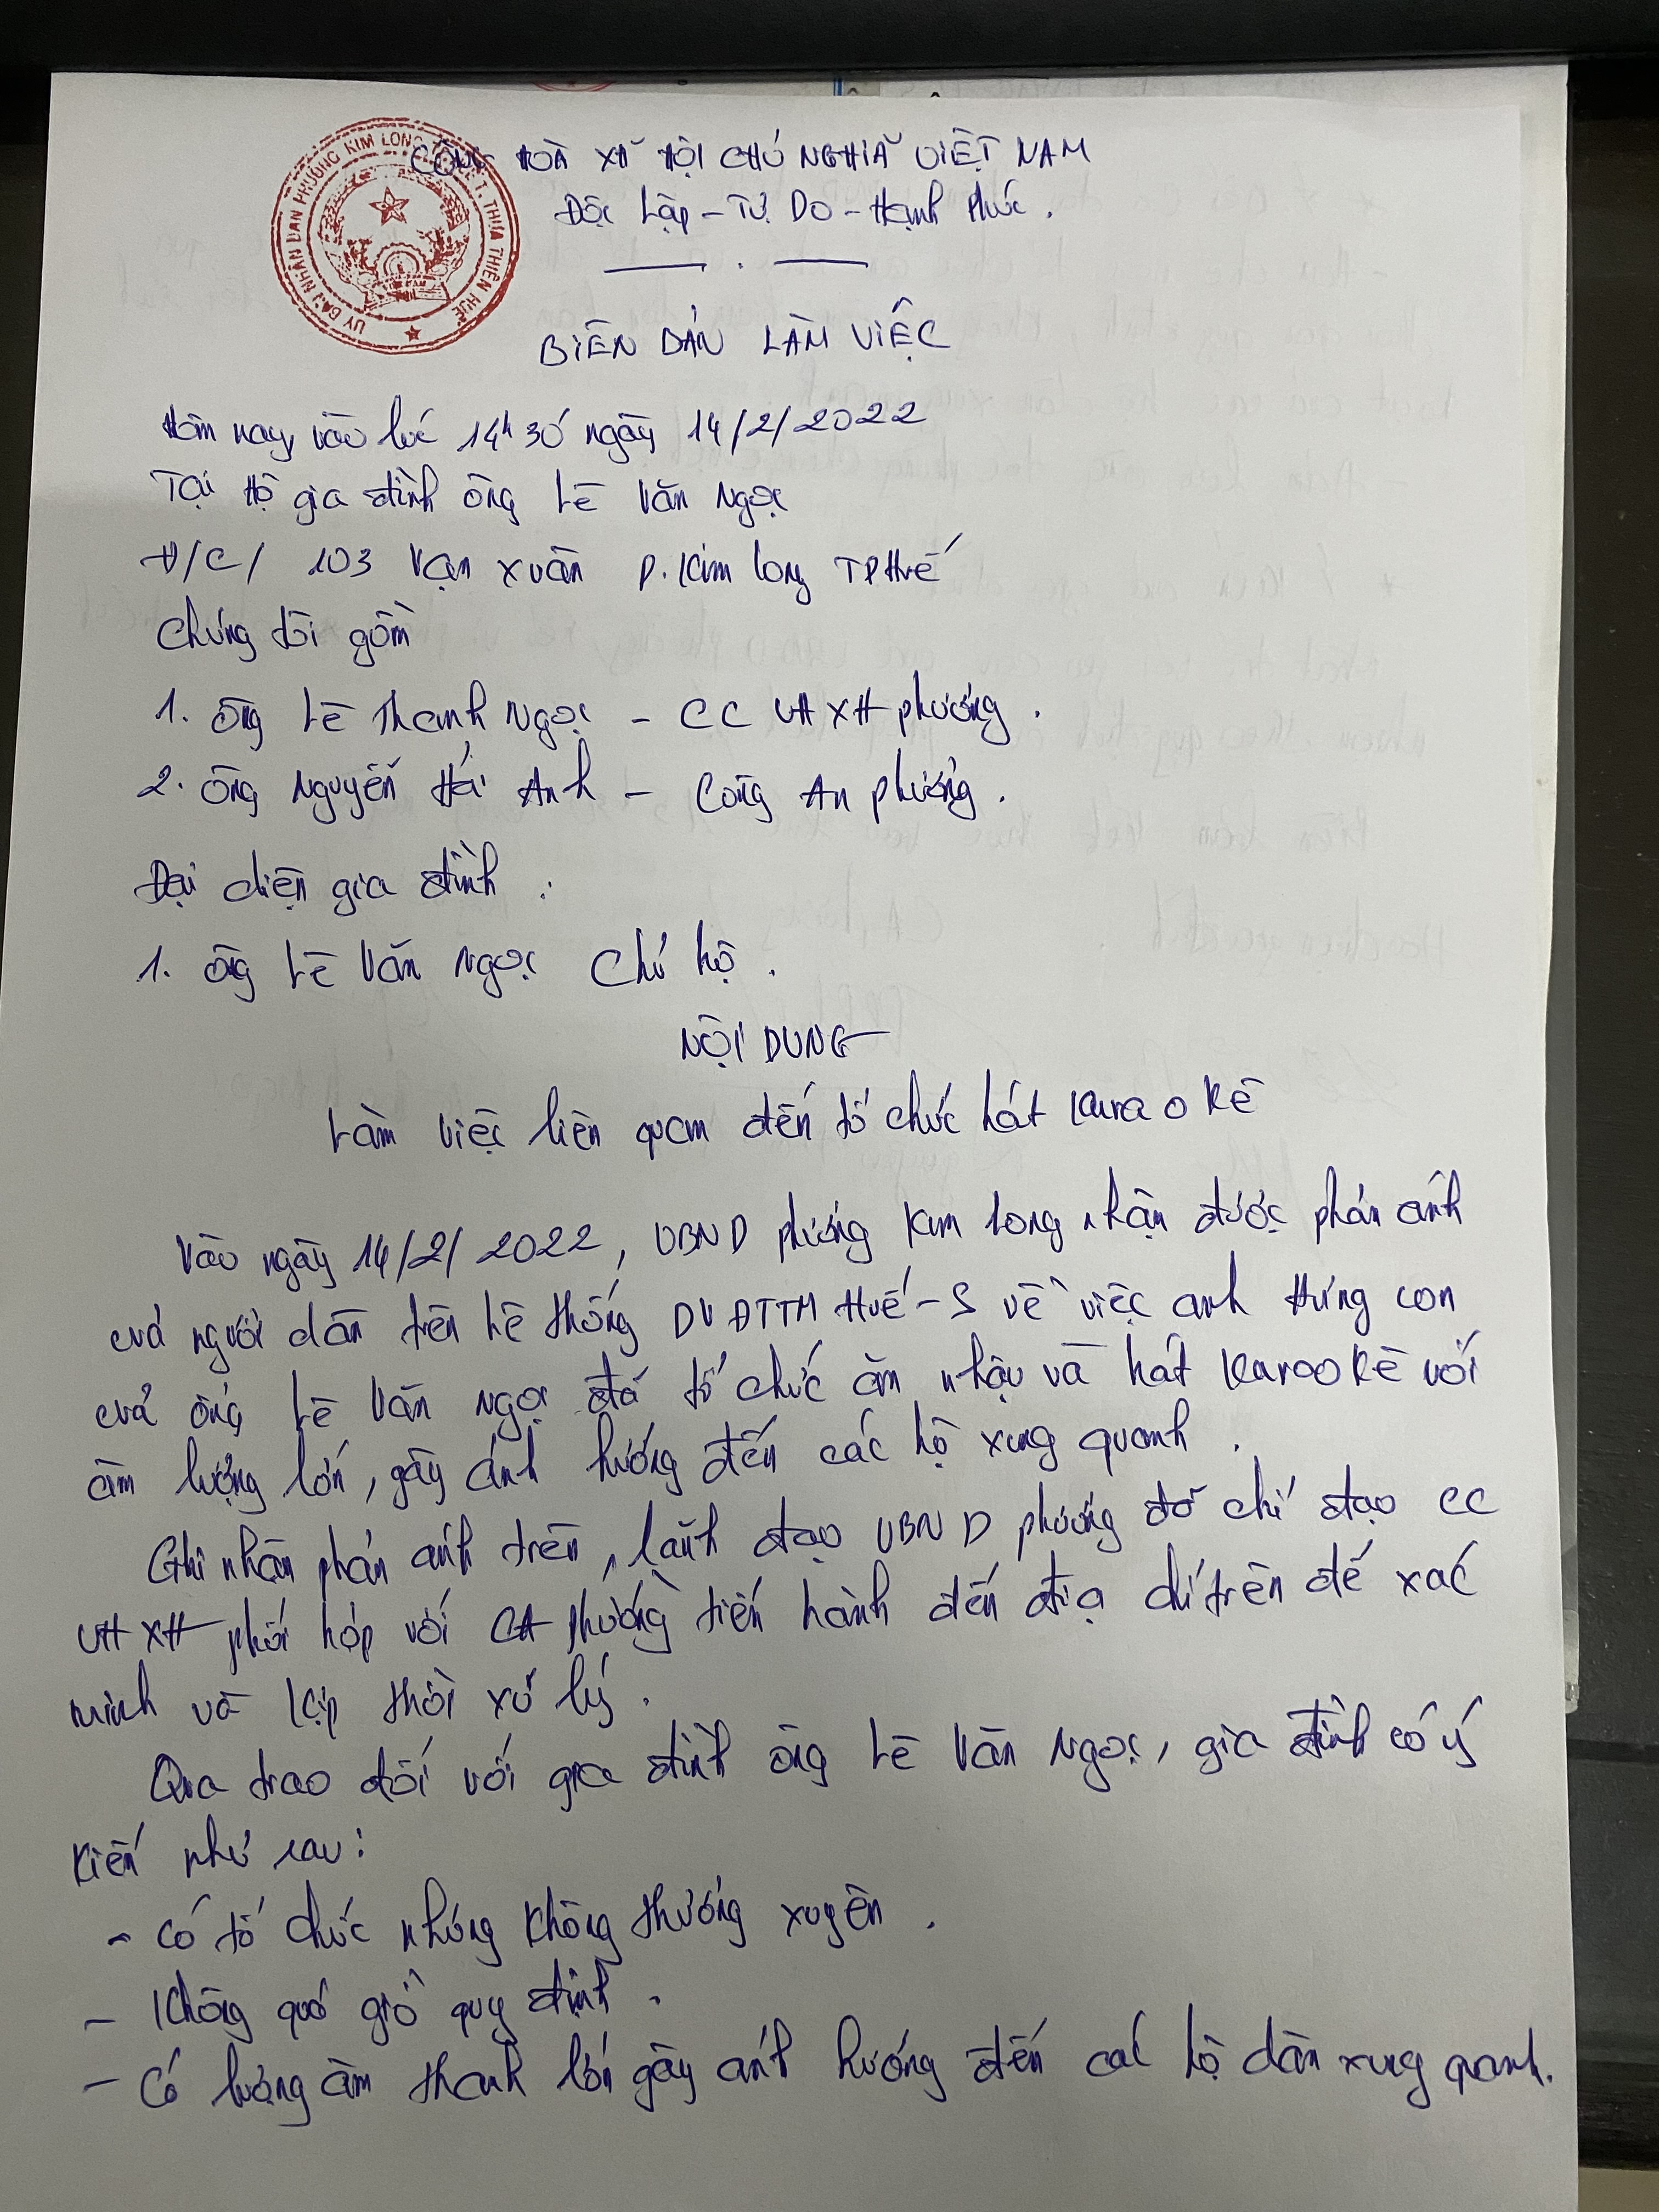 CỘNG HOÀ XÃ HỘI CHỦ NGHĨA VIỆT NAM
Độc Lập - Tự Do - Hạnh Phúc.
ỦY BAN NHÂN DÂN PHƯỜNG KIM LONG T. THỪA THIÊN HUẾ
BIÊN BẢN LÀM VIỆC
Hôm nay, vào lúc 14h30' ngày 14/2/2022
Tại Hộ gia đình ông Lê Văn Ngọc
Đ/C/ 103 Vạn Xuân P. Kim Long TP Huế
Chúng tôi gồm
1. Ông Lê Thanh Ngọc - CC VHXH phường.
2. Ông Nguyễn Hải Anh - Công An phường.
Đại diện gia đình:
1. Ông Lê Văn Ngọc Chủ hộ.
NỘI DUNG
Làm việc liên quan đến tổ chức hát Karaokê
Vào ngày 14/2/2022, UBND phường Kim Long nhận được phản ánh
của người dân trên hệ thống DVĐTTM Huế-S về việc anh Hưng con
của ông Lê Văn Ngọc đã tổ chức ăn nhậu và hát Karaokê với
âm lượng lớn, gây ảnh hưởng đến các hộ xung quanh.
Ghi nhận phản ánh trên, lãnh đạo UBND phường đã chỉ đạo CC
VHXH phối hợp với CA phường tiến hành đến địa chỉ trên để xác
minh và kịp thời xử lý.
Qua trao đổi với gia đình ông Lê Văn Ngọc, gia đình có ý
kiến như sau:
- Có tổ chức nhưng không thường xuyên.
- Không quá giờ quy định.
- Có lượng âm thanh lớn gây ảnh hưởng đến các hộ dân xung quanh.